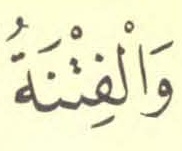 وَالْفِتْنَةُ